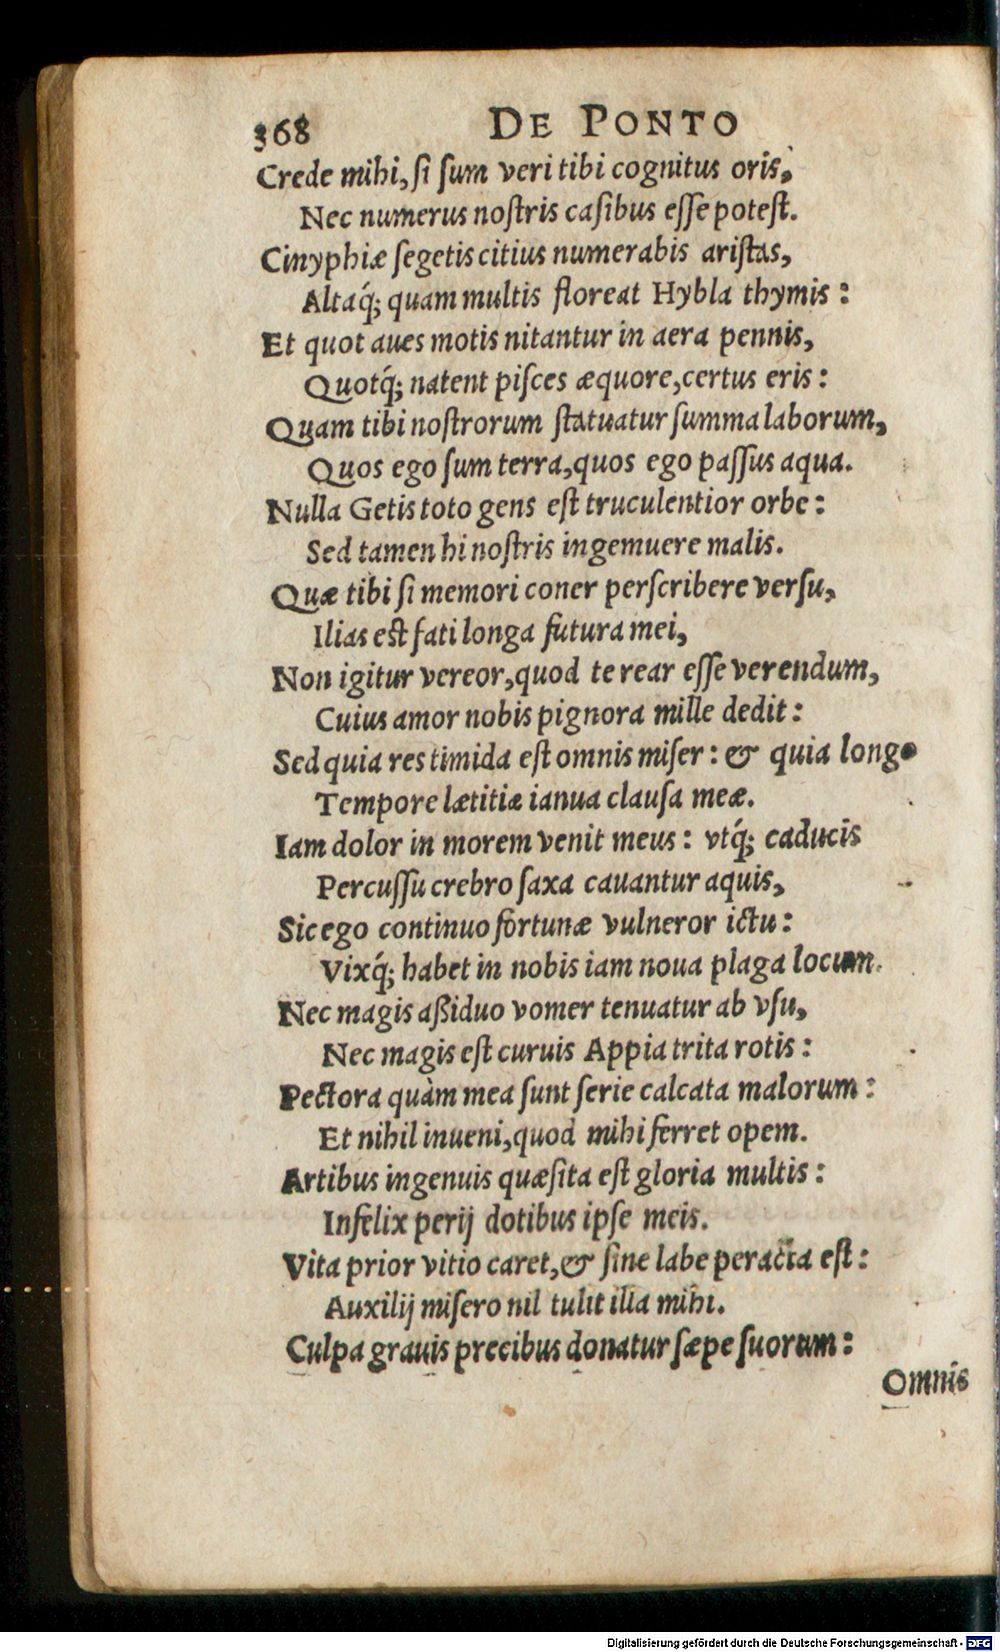 368 DE PONTO
Crede mihi, ſi ſum veri tibi cognitus oris,
Nec numerus noſtris caſibus eſſe poteſt.
Cinyphiæ ſegetis citius numerabis ariſtas,
Altaq́; quam multis floreat Hybla thymis:
Et quot aues motis nitantur in aera pennis,
Quotq́; natent piſces æquore, certus eris:
Quam tibi noſtrorum ſtatuatur ſumma laborum,
Quos ego ſum terra, quos ego paſſus aqua.
Nulla Getis toto gens eſt truculentior orbe:
Sed tamen hi noſtris ingemuere malis.
Quæ tibi ſi memori coner perſcribere verſu,
Ilias eſt fati longa futura mei,
Non igitur vereor, quod te rear eſſe verendum,
Cuius amor nobis pignora mille dedit:
Sed quia res timida eſt omnis miſer: & quia longo
Tempore lætitiæ ianua clauſa meæ.
Iam dolor in morem venit meus: vtq́; caducis
Percuſſu crebro ſaxa cauantur aquis,
Sic ego continuo fortunæ vulneror ictu:
Vixq́; habet in nobis iam noua plaga locum.
Nec magis aßiduo vomer tenuatur ab vſu,
Nec magis eſt curuis Appia trita rotis:
Pectora quàm mea ſunt ſerie calcata malorum:
Et nihil inueni, quod mihi ferret opem.
Artibus ingenuis quæſita eſt gloria multis:
Infelix perij dotibus ipſe meis.
Vita prior vitio caret, & ſine labe peracta eſt:
Auxilij miſero nil tulit illa mihi.
Culpa grauis precibus donatur ſæpe ſuorum:
Omnis
Digitalisierung gefördert durch die Deutsche Forschungsgemeinschaft - DFG